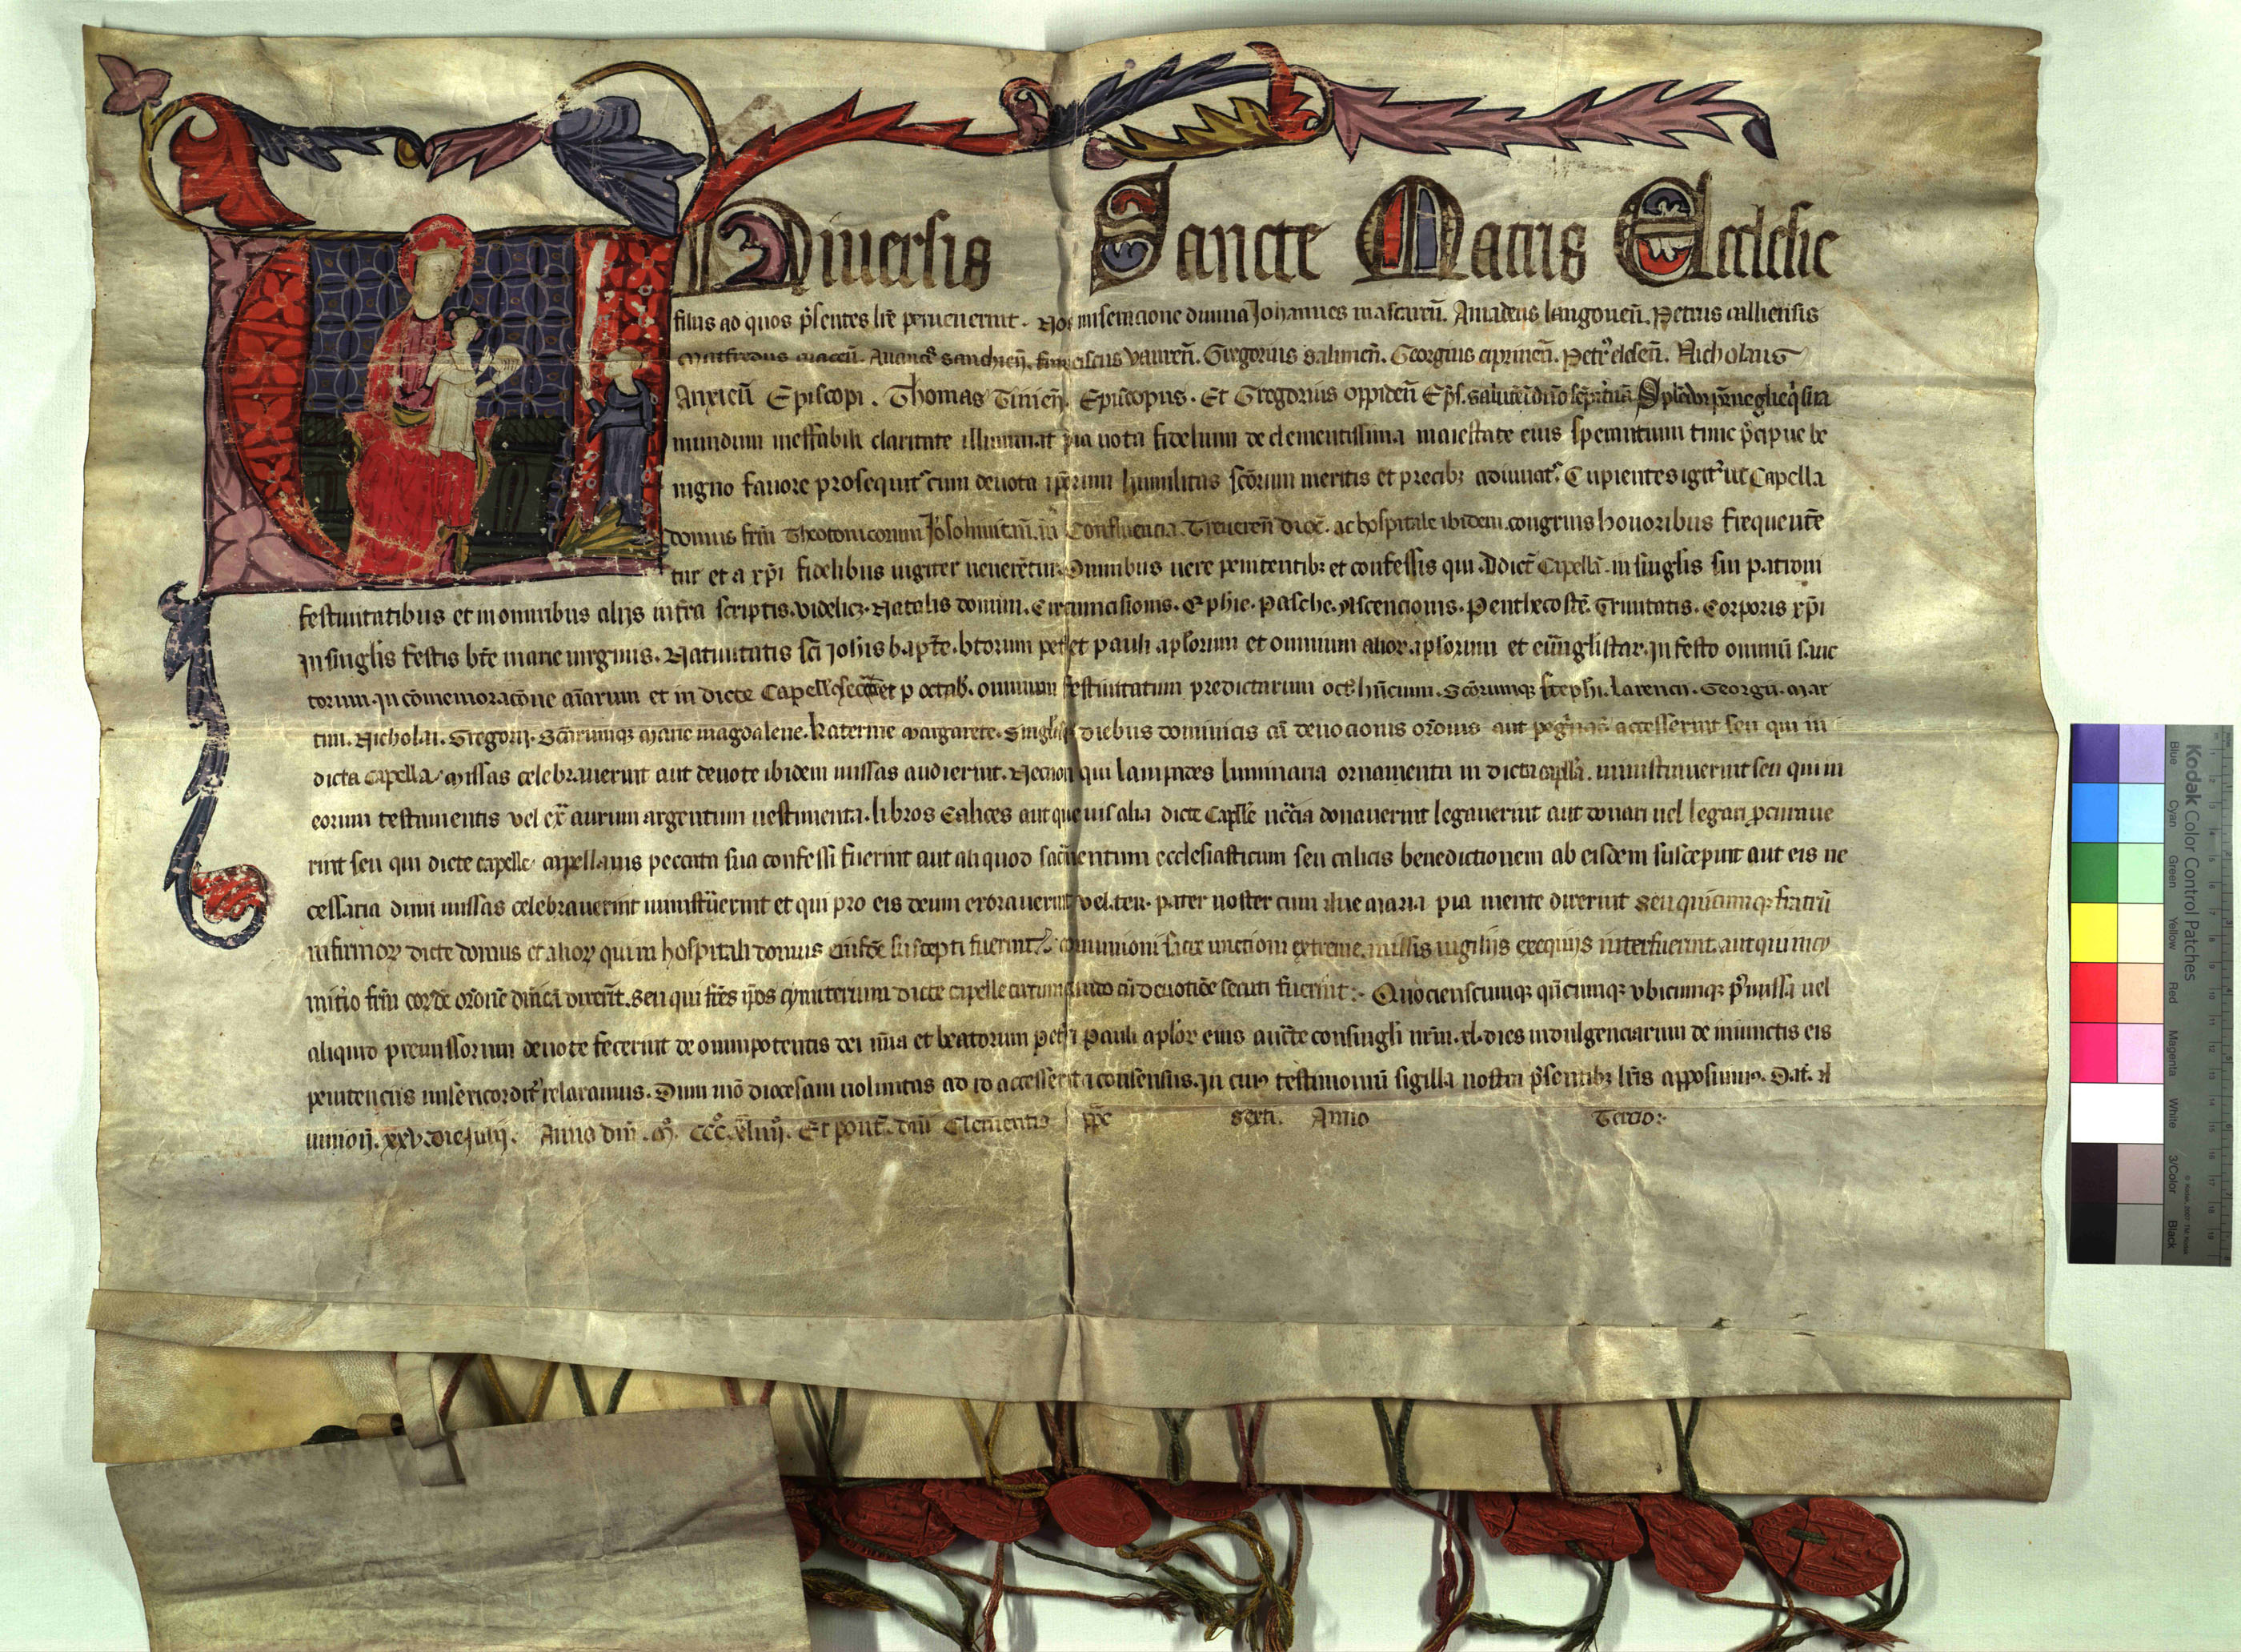 UNiuersis Sancte Matris Ecclesie
filiis ad quos p̄sentes lr̄e peruenerint. Nos miseracione diuina Johannes mascaren̄. Amadeus langonen̄. Petrus calliensis
Mathfredus Auancȝ sanchien̄. Franciscus Vauren̄. Gregorius Salinien̄. Georgius ciprinen̄. Petrꝰ eldsen̄. Nicholaus
Anxien̄ Episcopi. Thomas Tinien̄. Episcopus. Et Gregorius oppiden̄ Ep̄s. salutē in dn̄o sēpit̄nā Splēdor pr̄ne glīe q̇ sua
mundum ineffabili claritate illuminat pia uota fidelium de clementissima maiestate eius sperantium tunc p̄cipue be
nigno fauore prosequitˀ cum deuota ip̄orum humilitas sc̄orum meritis et precibȝ adiuuatˀ. Cupientes igitˀ ut Capella
domus fr̄m Theotonicorum Jerosolimitan̄. in Confluencia. Treueren̄ dioc̄. ac hospitale ibidem congruis honoribus frequentē
tur et a xp̄i fidelibus iugiter uenerētur. Omnibus uere penitentibȝ et confessis qui Ad dict̄ Capellā in singlis sui patroni
festiuitatibus et in omnibus alijs infra scriptis. videlicȝ. Natalis domini. Circumcisionis. Ephie. Pasche. Ascencionis. Penthecostē. Trinitatis. Corporis xp̄i
In singlis festis bt̄e marie uirginis. Natiuitatis sc̄i Joh̄is bapt̄e. btorum pet̄ et pauli ap̄lorum et omnium alior̄ ap̄lorum et euu̅nglistar̄. In festo omniū sanc
torum. In cōmemoracōne aīarum et in dicte Capelle et p octab̄. omnium festiuitatum predictarum oct̄ hn̄cium. Scōrumqȝ steph̄i. Larencij. Georgii. Mar
tini. Nicholai. Gregorij. Scārumqȝ Marie magdalene. Katerine Margarete. Singlis diebus dominicis cā deuocionis or̄onis aut accesserint seu qui in
dicta Capella missas celebrauerint aut deuote ibidem missas audierint. Necnon qui lampades luminaria ornamenta in dicta capella. ministrauerint seu qui in
eorum testamentis vel ex̄ aurum argentum uestimenta. libros Calices aut queuis alia dicte Capelle nc̄cia donauerint legauerint aut donari uel legari p̄curaue
rint seu qui dicte capelle capellanis peccata sua confessi fuerint aut aliquod sac̄mentum ecclesiasticum seu calicis benedictionem ab eisdem suscepint aut eis ne
cessaria dum missas celebrauerint ministrauerint et qui pro eis deum exorauerint vel. ter. pater noster cum Aue maria pia mente dixerint seu quicumqȝ fratrū
infirmorꝝ dicte domus et aliorꝝ qui in hospitali domus eiusdē suscepti fuerint comunioni sacre unctioni extreme. missis uigiliis exequiis interfuerint. aut qui in cy
mitīo fr̄m cordē or̄onē dn̄icā dixerīt. seu qui fr̄es ip̄os cymiterium dicte capelle circumeundo cū deuotiōe secuti fuerint:- Quocienscumqȝ qn̄cumqȝ vbicumqȝ p̄missa uel
aliquid premissorum deuote fecerint de omnipotentis dei mīa et beatorum petri Pauli ap̄lor̄ eius auct̄e confisi singli nr̄m. xl. dies indulgenciarum de iniunctis eis
penitenciis misericorditˀ relaxamus. Dum mō diocesani uolūntas ad id accesserit & consensus. In cuiꝰ testimoniū sigilla nostra p̄sentibȝ lr̄is apposuimꝰ. Dat̄. A
uinion̄. xxv. die Julij. Anno dn̄i. Mº. CCCº. xliiijº. Et pont̄. dn̄i Clementis pp̄e Sexti. Anno Tercio:-
Kodak Color Control Patches
Blue Cyan Green Yellow Red Magenta White 3/Color Black